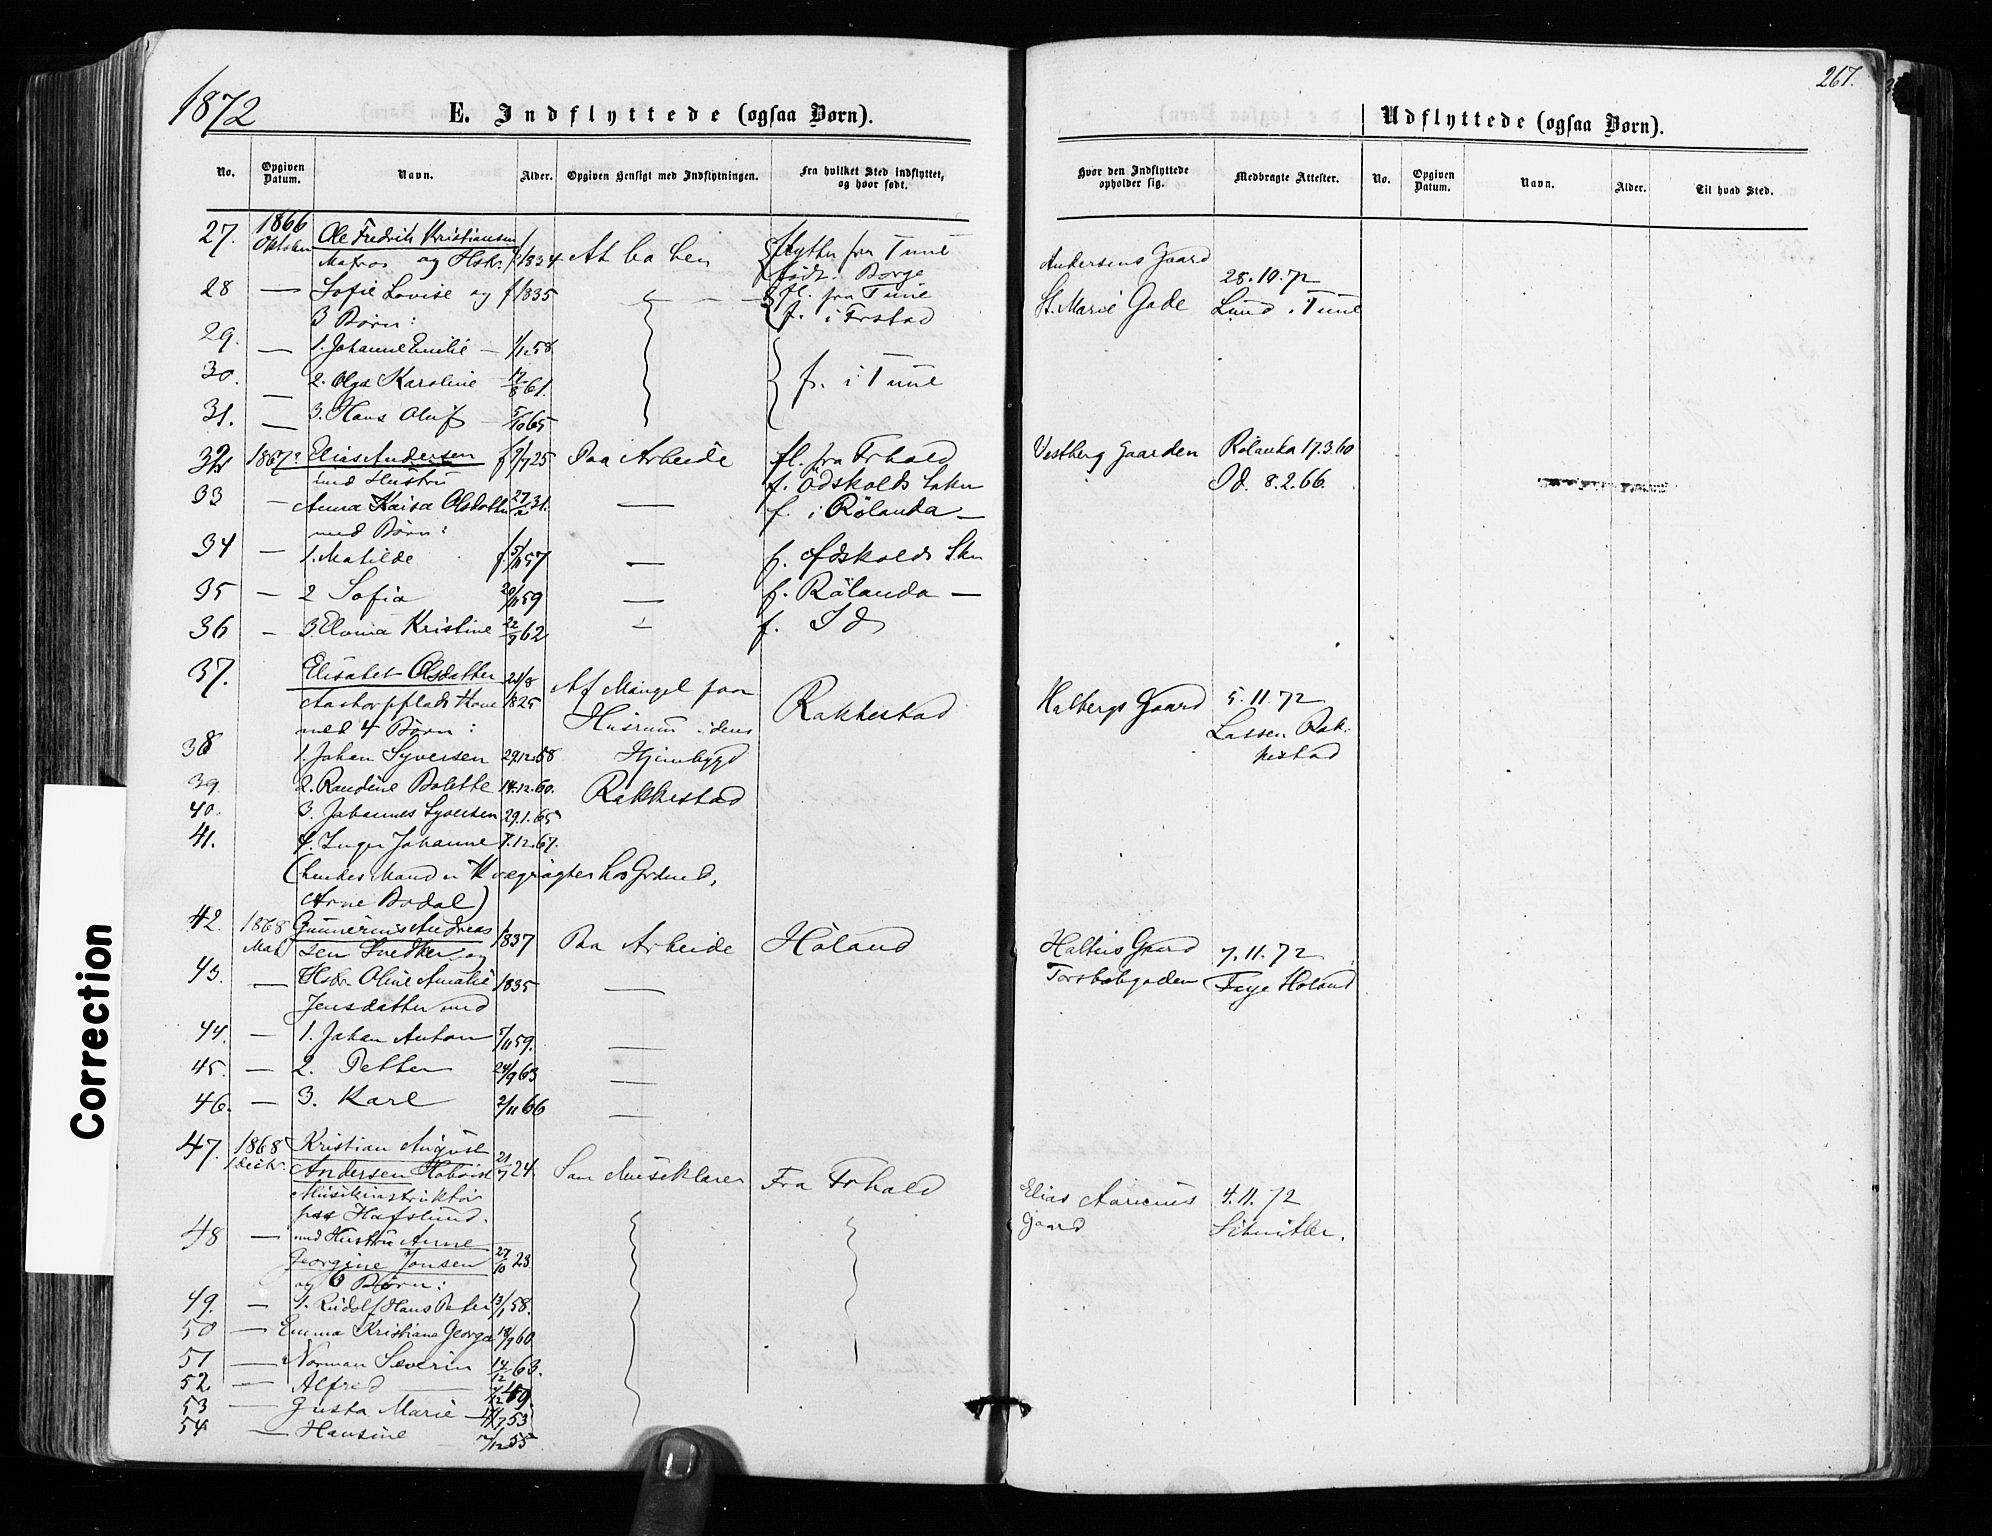 1872
267.
E. Indflyttede (ogsaa Børn).
Udflyttede (ogsaa Børn).
No. Opgiven Datum. Navn. Alder. Opgiven Hensigt med Indflytningen. Fra hvilket Sted indflyttet, og hvor født. Hvor den Indflyttede opholder sig. Medbragte Attester. No. Opgiven Datum. Navn. Alder. Til hvad Sted.
27. 1866 Ole Fredrik Kristiansen
Matros og Hstr. f 1834 At bo her flytter fra Tune
født Borge Andersens Gaard 28.10.72
28 — Sofie Lovise og f 1835 fl. fra Tune St. Marie Gade Lund i Tune
3 Børn: f. i
29. — 1. Johanne Emilie — 1/12 58
30. — 2. Olga Karoline 17/8 61. f. i Tune
31. — 3. Hans Oluf 5/10 65
32 1867 Elias Andersen f 9/7 25 Paa Arbeide fl. fra Frhald Vestberg Gaarden Rølanda 17.3.60
med Hustru f. Ødskolds Id. 8.2.66.
33 — Anna Kaisa Olsdatter 27/2 31. — f. i Rølanda —
med Børn:
34 — 1. Matilde f 5/11 57 — f. Ødskolds
35 — 2 Sofia 20/11 59 — f. Rølanda —
36 — 3. Kristine 22/9 62 f. Id
37. Elisabet Olsdatter 21/8 1825 Af Mangel paa Husrum i dens Hjembygd Rakkestad Rakkestad Halbergs Gaard 5.11.72
med 4 Børn: Lassen Rakkestad
38 1. Johan Syversen 29.12.58
39 2. Randine Bolette 14.12.60.
40. 3. Johannes Syversen 29.1.65
41. 4. Inger Johanne 7.12.67.
(hendes Mand er Kvægrøgter hos
Arne Bodal)
42. 1868 Gunnerius Andreas
sen Snedker og 1837 Paa Arbeide Høland Gaard 7.11.72
43. — Hstr. Oline Amalie 1835 — Torsbekgaden Faye Høland
Jensdatter med
44. — 1. Johan Anton 5/11 59. —
45. — 2. Petter 24/9 63 —
46. — 3. Karl 2/11 66 —
47. 1868 Kristian August
Andersen 21/7 24. Som Fra Frhald Elias Gaard 4.11.72
Musikinstruktør
paa Hafslund. Schnitler.
48 — med Hustru Anne
Georgine Jonsen 27/10 23
og 6 Børn:
49. — 1. Rudolf Hans Peter 13/1 58.
50 — Emma Kristiane Georga 18/9 60
51 — Norman Severin 14/12 63.
52 — Alfred —
53 — Gusta Marie
54 — Hansine 55
Correction